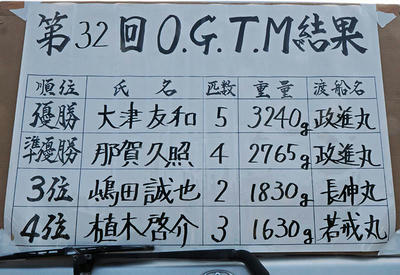 第32回 O.G.T.M結果
順位 氏名 匹数 重量 渡船名
優勝 大津友和 5 3240g 政進丸
準優勝 那賀久照 4 2765g 政進丸
3位 嶋田誠也 2 1830g 長伸丸
4位 植木啓介 3 1630g 若戒丸